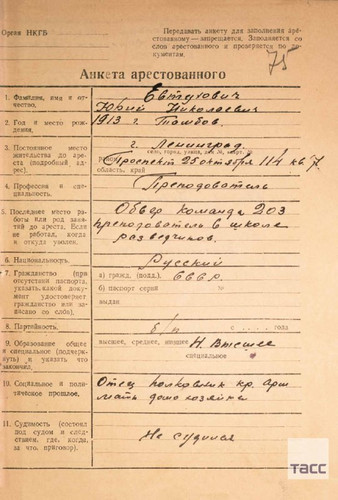 Орган НКГБ
Передавать анкету для заполнения аре-
стованному — запрещается. Заполняется со
слов арестованного и проверяется по до-
кументам.
75
Анкета арестованного
1. Фамилия, имя и от-
чество.
Евтухович
Юрий Николаевич
2. Год и место рож-
дения.
1913 г. Тамбов.
3. Постоянное место
жительства до аре-
ста (подробный ад-
рес).
г. Ленинград.
село, город, улица,
Проспект 25 октября 114 кв 7.
область, край
4. Профессия и спе-
циальность.
Преподователь
5. Последнее место ра-
боты или род заня-
тий до ареста. Если
не работал, когда
и откуда уволен.
Обвер команда 203
преподователь в школе
разведчиков.
6. Национальность.
Русский
7. Гражданство (при
отсутствии паспорта,
указать, какой доку-
мент удостоверяет
гражданство или за-
писано со слов).
а) гражд. (подд.)
СССР.
б) паспорт серии
№
выдан
8. Партийность.
б/п
с года
9. Образование общее
и специальное (подчерк-
нуть) и указать что
закончил.
высшее, среднее, низшее
Н. Высшее
специальное
10. Социальное и поли-
тическое прошлое.
Отец полковник кр. арм
мать домохозяйка
11. Судимость (состоял
под судом и след-
ствием, где, когда,
за что, приговор).
Не судился
ТАСС